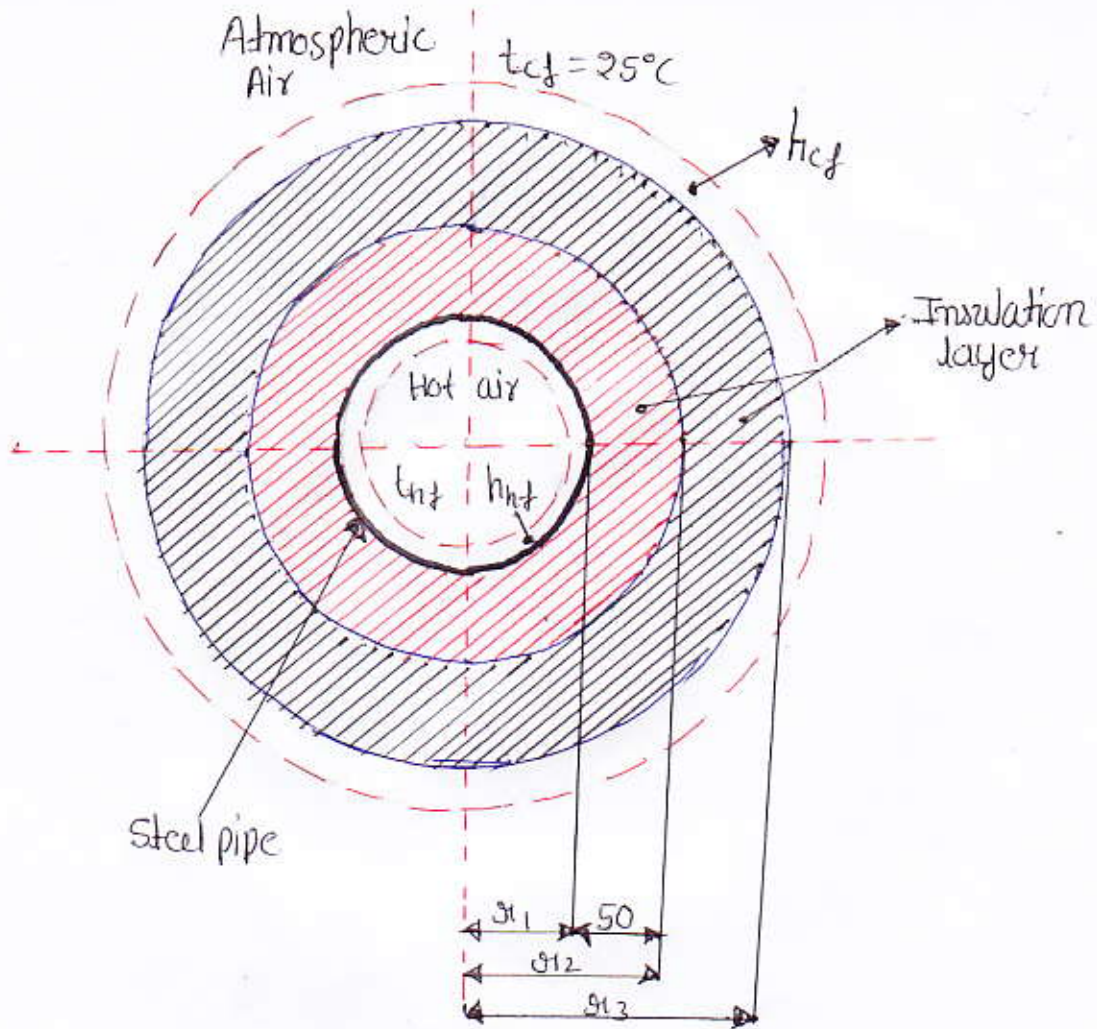 Atmospheric
Air
tcf = 25°C
hcf
Insulation
layer
Hot air
thf
hhf
Steel pipe
r1
50
r2
r3